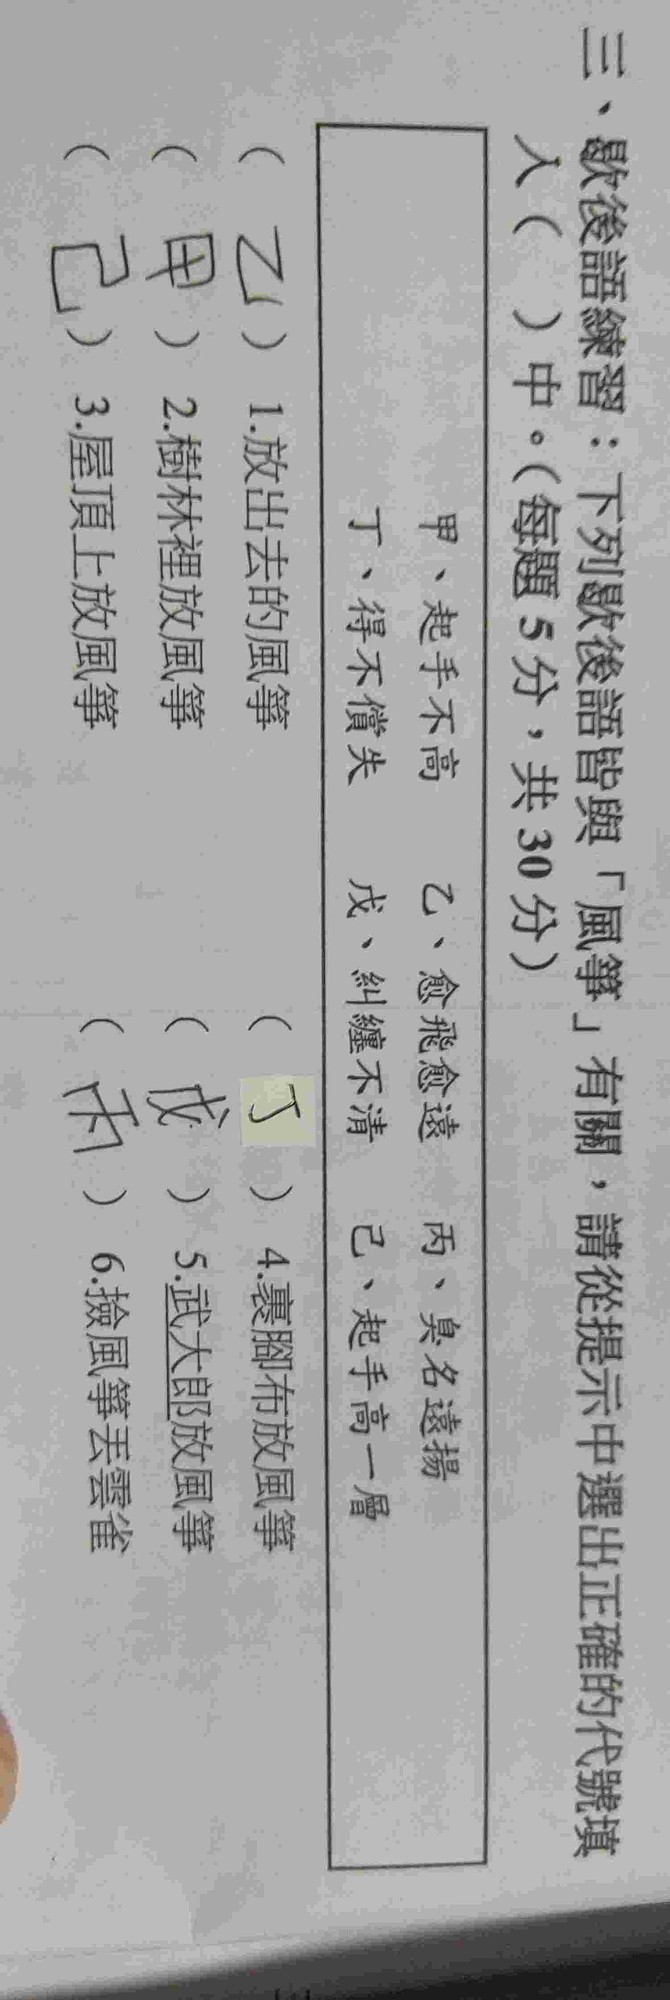 三、歇後語練習：下列歇後語皆與「風箏」有關，請從提示中選出正確的代號填
入（　）中。（每題 5 分，共 30 分）
甲、起手不高　乙、愈飛愈遠　丙、臭名遠揚
丁、得不償失　戊、糾纏不清　己、起手高一層
（乙）1.放出去的風箏　（丁）4.裹腳布放風箏
（甲）2.樹林裡放風箏　（戊）5.武大郎放風箏
（己）3.屋頂上放風箏　（丙）6.撿風箏丟雲雀